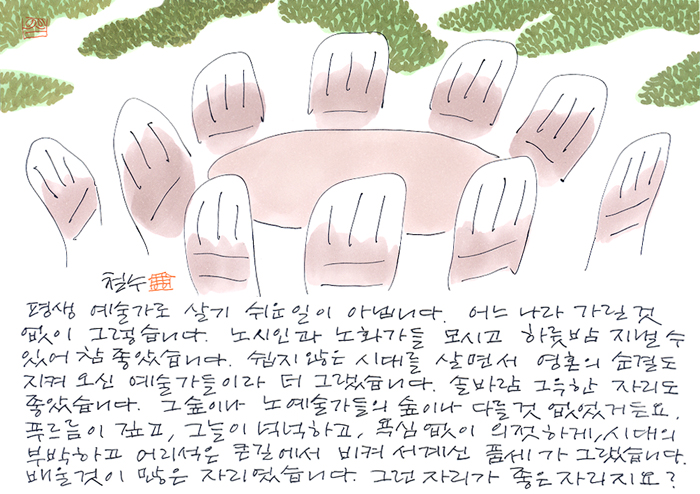 철수
평생 예술가로 살기 쉬운일이 아닙니다. 어느 나라 가릴것
없이 그렇습니다. 노시인과 노화가들 모시고 하룻밤 지낼 수
있어 참 좋았습니다. 쉽지않은 시대를 살면서 영혼의 순결도
지켜 오신 예술가들이라 더 그랬습니다. 솔바람 그윽한 자리도
좋았습니다. 그숲이나 노예술가들의 숲이나 다를것 없었거든요.
푸르름이 깊고, 그늘이 넉넉하고, 욕심없이 의젓하게, 시대의
부박하고 어리석은 큰길에서 비켜 서계신 품세가 그랬습니다.
배울것이 많은 자리였습니다. 그런 자리가 좋은자리지요?